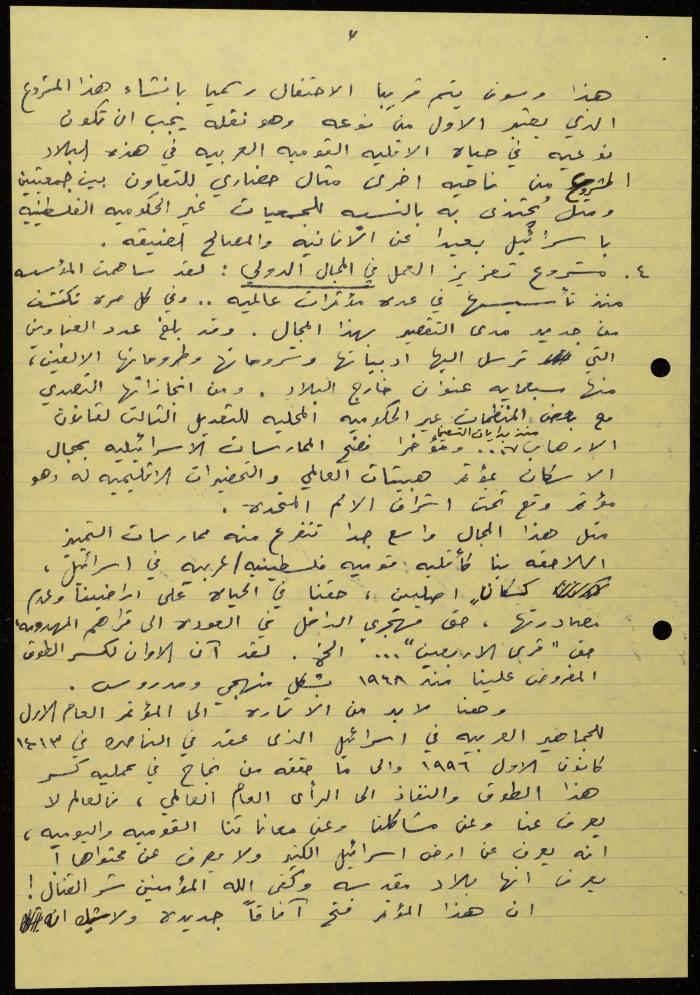 ٧
هذا وسوف يتم قريبا الاحتفال رسميا بانشاء هذا المشروع
الذي يعتبر الاول من نوعه وهو نقله يجب ان تكون
نوعيه في حياة الاقليه القوميه العربيه في هذه البلاد
المشروع من ناحيه اخرى مثال حضاري للتعاون بين جمعيتين
ومثل يُحتذى به بالنسبه للجمعيات غير الحكوميه الفلسطينية
باسرائيل بعيدا عن الأنانيه والمصالح الضيقه .
٤. مشروع تعزيز العمل في المجال الدولي : لقد ساهمت المؤسسه
منذ تأسيسها في عدة مؤتمرات عالميه .. وفي كل مرة نكتشف
من جديد مدى التقصير بهذا المجال . وقد بلغ عدد العناوين
التي ترسل اليها ادبياتها وشروحاتها وطروحاتها الالفين ،
منها سبعمايه عنوان خارج البلاد . ومن انجازاتها التصدي
مع بعض المنظمات غير الحكوميه المحليه للتعديل الثالث لقانون
الارهاب منذ بدايات التسعينات .. ومؤخرا فضح الممارسات الاسرائيليه بمجال
الاسكان بمؤتمر هبيتات العالمي والتحضيرات الاقليميه له وهو
مؤتمر وقع تحت اشراف الامم المتحده .
مثل هذا المجال واسع جدا تتفرع منه ممارسات التمييز
اللاحقه بنا كأقليه قوميه فلسطينيه/عربيه في اسرائيل ،
كسكان اصليين ، حقنا في الحياة على اراضينا وعدم
مصادرتها ، حق مهجري الداخل في العودة الى قراهم المهدومه
حق "قرى الاربعين" ... الخ . لقد آن الاوان لكسر الطوق
المفروض علينا منذ ١٩٤٨ بشكل منهجي ومدروس .
وهنا لا بد من الاشارة الى المؤتمر العام الاول
للجماهير العربيه في اسرائيل الذى عقد في الناصره في ١٣-١٤
كانون الاول ١٩٩٦ والى ما حققه من نجاح في عمليه كسر
هذا الطوق والنفاذ الى الرأى العام العالمي ، فالعالم لا
يعرف عنا وعن مشاكلنا وعن معاناتنا القوميه واليوميه ،
انه يعرف عن ارض اسرائيل الكثير ولا يعرف عن محتواها !
يعرف انها بلاد مقدسه وكفى الله المؤمنين شر القتال !
ان هذا المؤتمر فتح آفاقاً جديدة ولا شك انه